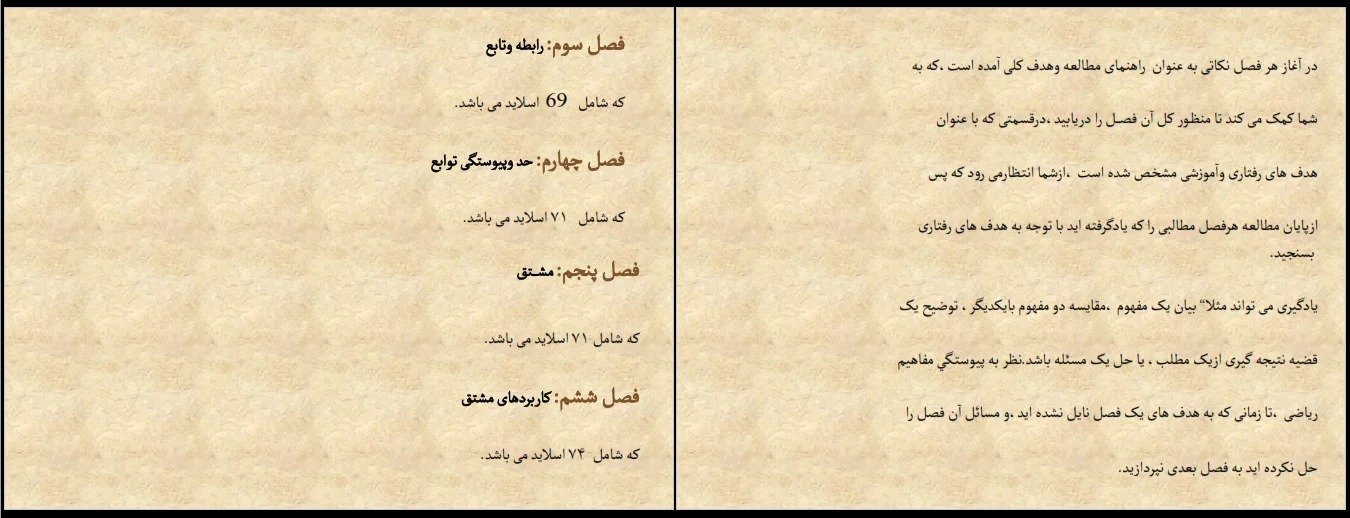 در آغاز هر فصل نکاتی به عنوان راهنمای مطالعه وهدف کلی آمده است ،که به
شما کمک می کند تا منظور کل آن فصل را دریابید ،درقسمتی که با عنوان
هدف های رفتاری وآموزشی مشخص شده است ،ازشما انتظارمی رود که پس
ازپایان مطالعه هرفصل مطالبی را که یادگرفته اید با توجه به هدف های رفتاری
بسنجید.
یادگیری می تواند مثلا“ بیان یک مفهوم ،مقایسه دو مفهوم بایکدیگر ، توضیح یک
قضیه نتیجه گیری ازیک مطلب ، یا حل یک مسئله باشد.نظر به پیوستگي مفاهیم
ریاضی ،تا زمانی که به هدف های یک فصل نایل نشده اید ،و مسائل آن فصل را
حل نکرده اید به فصل بعدی نپردازید.
فصل سوم: رابطه وتابع
که شامل 69 اسلاید می باشد.
فصل چهارم: حد وپیوستگی توابع
که شامل ۷۱ اسلاید می باشد.
فصل پنجم: مشـتق
که شامل ۷۱ اسلاید می باشد.
فصل ششم: کاربردهای مشتق
که شامل ۷۴ اسلاید می باشد.